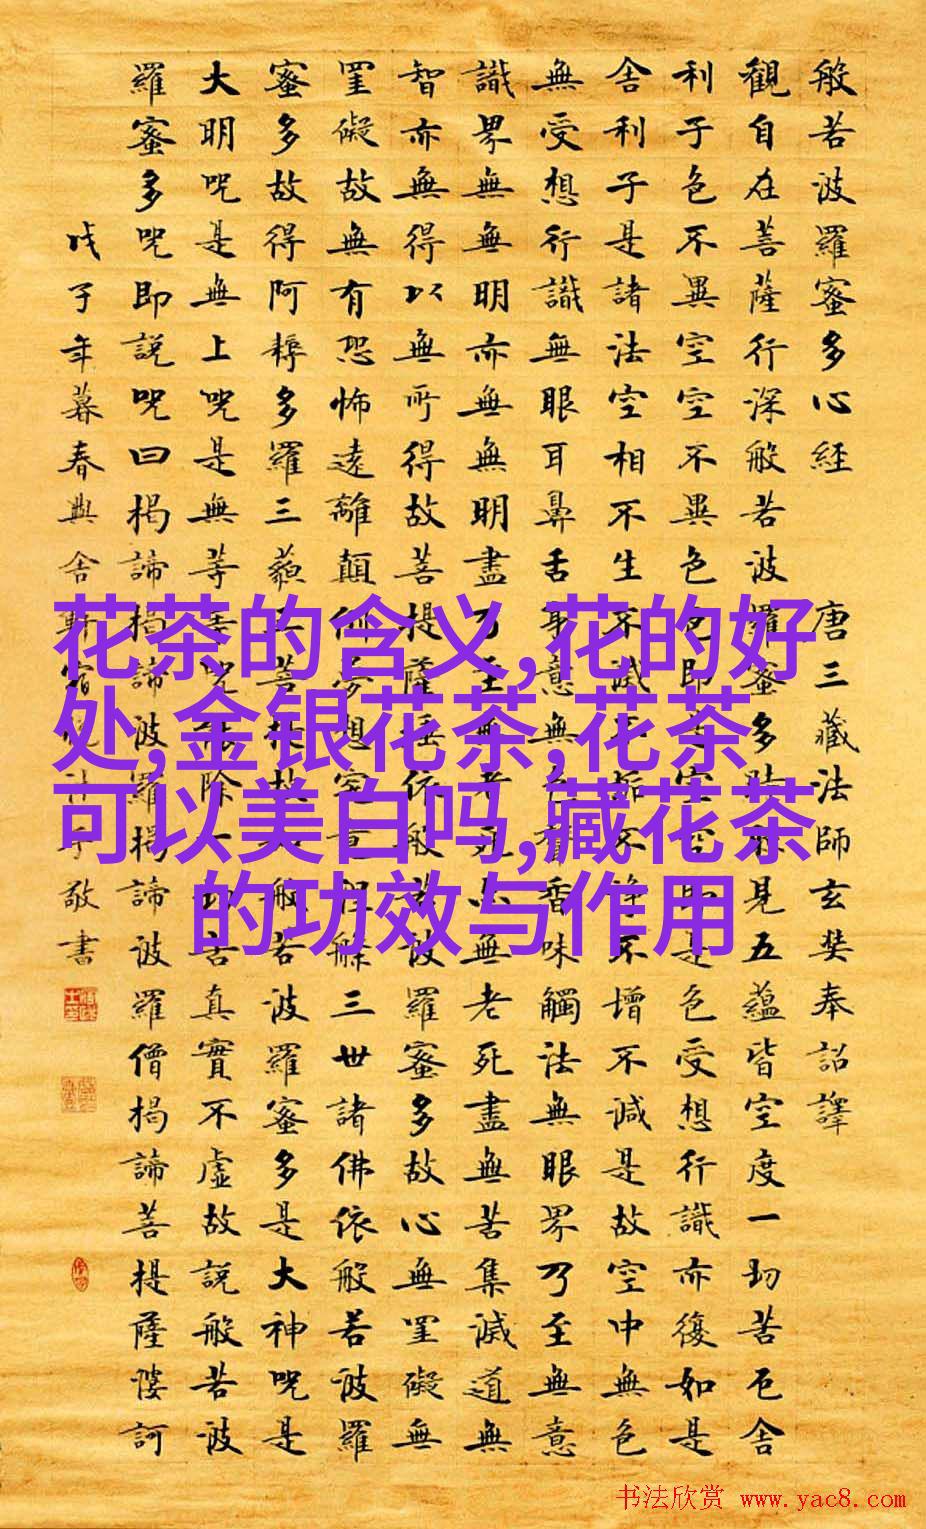 般若波羅蜜多心經 唐三藏法師玄奘奉詔譯
觀自在菩薩行深般若波羅蜜多時照見五蘊皆空度一切苦厄舍
利子色不異空空不異色色即是空空即是色受想行識亦復如是
舍利子是諸法空相不生不滅不垢不淨不增不減是故空中無色
無受想行識無眼耳鼻舌身意無色聲香味觸法無眼界乃至無意
識界無無明亦無無明盡乃至無老死亦無老死盡無苦集滅道無
智亦無得以無所得故菩提薩埵依般若波羅蜜多故心無罣礙無
罣礙故無有恐怖遠離顛倒夢想究竟三世諸佛依般若波羅
蜜多故得阿耨多羅三藐三菩提故知般若波羅蜜多是大神咒是
大明咒是無上咒是無等等咒能除一切苦真實不虛故說般若波
羅蜜多咒即說咒曰揭諦揭諦波羅揭諦波羅僧揭諦菩提薩婆訶
戊子年暮春敬書
花茶的含义,花的好
处,金银花茶,花茶
可以美白吗,藏花茶
的功效与作用
书法欣赏 www.yac8.com